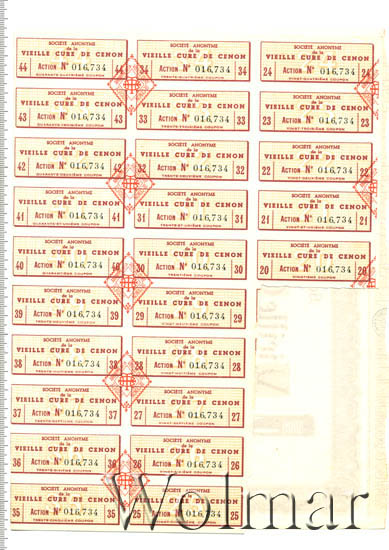 SOCIÉTÉ ANONYME
de la
VIEILLE CURE DE CENON
44 ACTION N° 016,734 44
QUARANTE-QUATRIÈME COUPON
SOCIÉTÉ ANONYME
de la
VIEILLE CURE DE CENON
43 ACTION N° 016,734 43
QUARANTE-TROISIÈME COUPON
SOCIÉTÉ ANONYME
de la
VIEILLE CURE DE CENON
42 ACTION N° 016,734 42
QUARANTE-DEUXIÈME COUPON
SOCIÉTÉ ANONYME
de la
VIEILLE CURE DE CENON
41 ACTION N° 016,734 41
QUARANTE-ET-UNIÈME COUPON
SOCIÉTÉ ANONYME
de la
VIEILLE CURE DE CENON
40 ACTION N° 016,734 40
QUARANTIÈME COUPON
SOCIÉTÉ ANONYME
de la
VIEILLE CURE DE CENON
39 ACTION N° 016,734 39
TRENTE-NEUVIÈME COUPON
SOCIÉTÉ ANONYME
de la
VIEILLE CURE DE CENON
38 ACTION N° 016,734 38
TRENTE-HUITIÈME COUPON
SOCIÉTÉ ANONYME
de la
VIEILLE CURE DE CENON
37 ACTION N° 016,734 37
TRENTE-SEPTIÈME COUPON
SOCIÉTÉ ANONYME
de la
VIEILLE CURE DE CENON
36 ACTION N° 016,734 36
TRENTE-SIXIÈME COUPON
SOCIÉTÉ ANONYME
de la
VIEILLE CURE DE CENON
35 ACTION N° 016,734 35
TRENTE-CINQUIÈME COUPON
SOCIÉTÉ ANONYME
de la
VIEILLE CURE DE CENON
34 ACTION N° 016,734 34
TRENTE-QUATRIÈME COUPON
SOCIÉTÉ ANONYME
de la
VIEILLE CURE DE CENON
33 ACTION N° 016,734 33
TRENTE-TROISIÈME COUPON
SOCIÉTÉ ANONYME
de la
VIEILLE CURE DE CENON
32 ACTION N° 016,734 32
TRENTE-DEUXIÈME COUPON
SOCIÉTÉ ANONYME
de la
VIEILLE CURE DE CENON
31 ACTION N° 016,734 31
TRENTE-ET-UNIÈME COUPON
SOCIÉTÉ ANONYME
de la
VIEILLE CURE DE CENON
30 ACTION N° 016,734 30
TRENTIÈME COUPON
SOCIÉTÉ ANONYME
de la
VIEILLE CURE DE CENON
29 ACTION N° 016,734 29
VINGT-NEUVIÈME COUPON
SOCIÉTÉ ANONYME
de la
VIEILLE CURE DE CENON
28 ACTION N° 016,734 28
VINGT-HUITIÈME COUPON
SOCIÉTÉ ANONYME
de la
VIEILLE CURE DE CENON
27 ACTION N° 016,734 27
VINGT-SEPTIÈME COUPON
SOCIÉTÉ ANONYME
de la
VIEILLE CURE DE CENON
26 ACTION N° 016,734 26
VINGT-SIXIÈME COUPON
SOCIÉTÉ ANONYME
de la
VIEILLE CURE DE CENON
25 ACTION N° 016,734 25
VINGT-CINQUIÈME COUPON
SOCIÉTÉ ANONYME
de la
VIEILLE CURE DE CENON
24 ACTION N° 016,734 24
VINGT-QUATRIÈME COUPON
SOCIÉTÉ ANONYME
de la
VIEILLE CURE DE CENON
23 ACTION N° 016,734 23
VINGT-TROISIÈME COUPON
SOCIÉTÉ ANONYME
de la
VIEILLE CURE DE CENON
22 ACTION N° 016,734 22
VINGT-DEUXIÈME COUPON
SOCIÉTÉ ANONYME
de la
VIEILLE CURE DE CENON
21 ACTION N° 016,734 21
VINGT-ET-UNIÈME COUPON
SOCIÉTÉ ANONYME
de la
VIEILLE CURE DE CENON
20 ACTION N° 016,734 20
VINGTIÈME COUPON
Wolmar